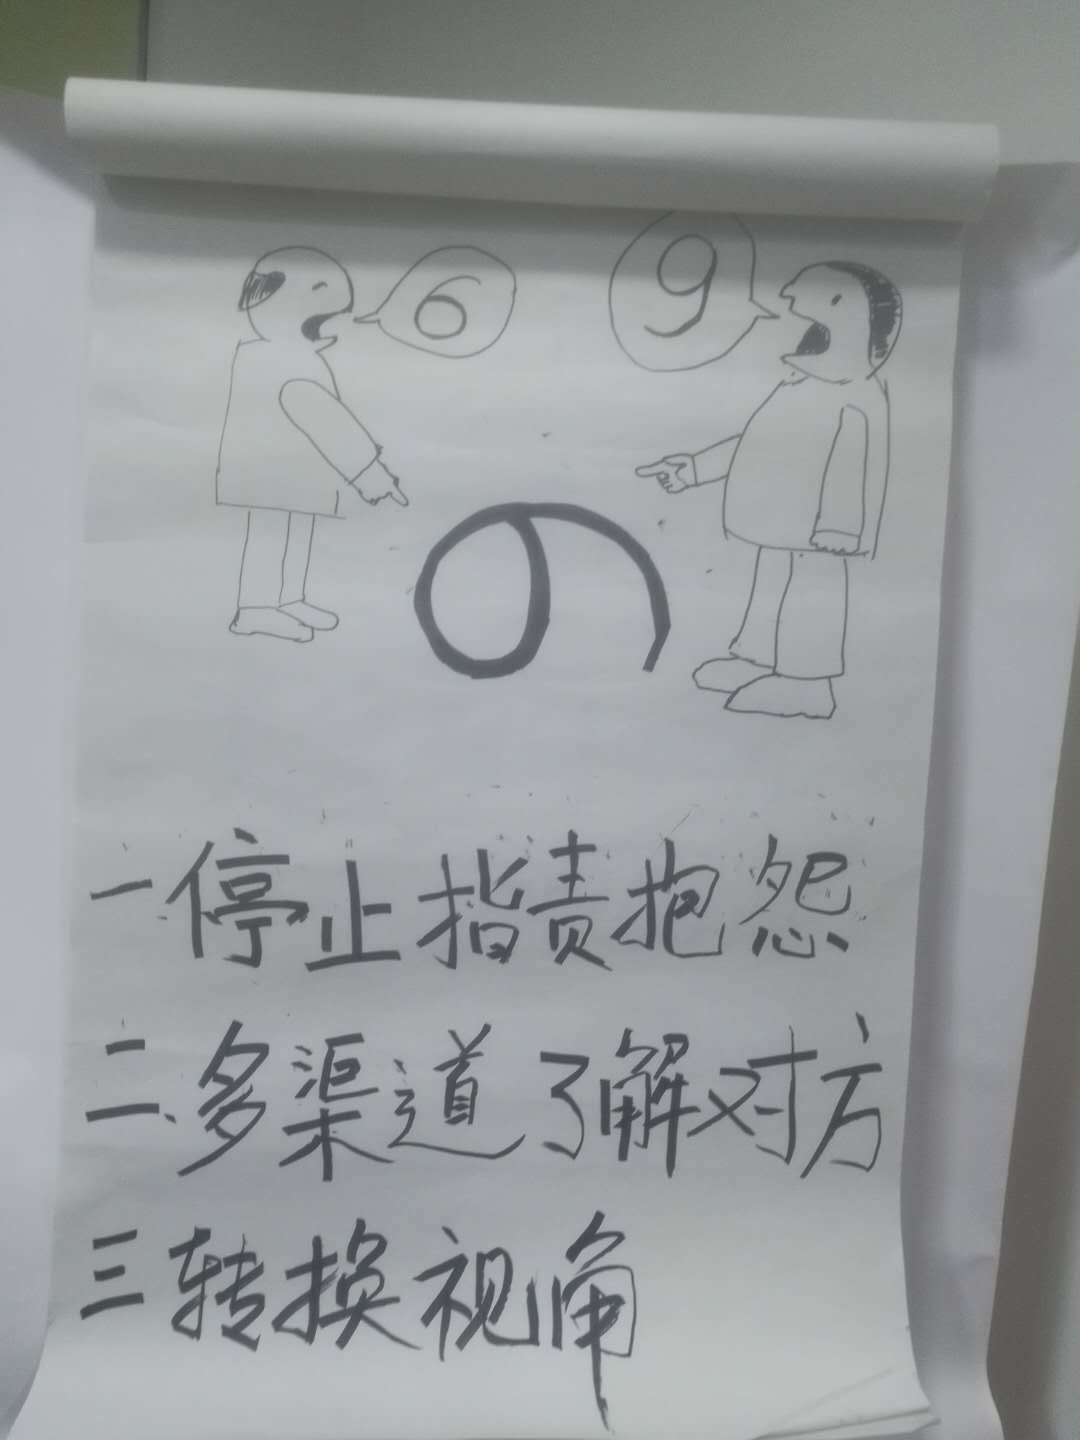 6 9
一.停止指责抱怨
二.多渠道了解对方
三转换视角